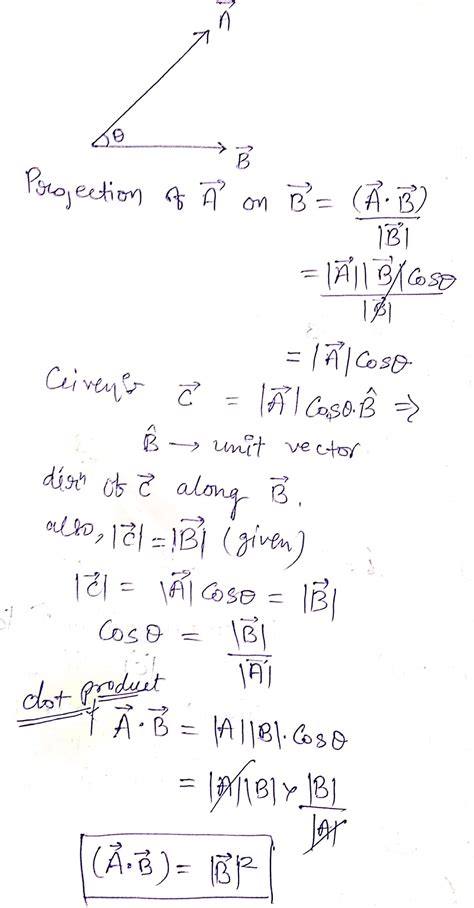 A⃗
θ
B⃗
Projection of A⃗ on B⃗ = (A⃗ · B⃗) / |B⃗|
= |A⃗||B⃗|Cosθ / |B⃗|
= |A⃗|Cosθ
Given C⃗ = |A⃗|Cosθ.B̂ ⇒
B̂ → unit vector
dirⁿ of C⃗ along B⃗.
also, |C⃗| = |B⃗| (given)
|C⃗| = |A⃗|Cosθ = |B⃗|
Cosθ = |B⃗| / |A⃗|
dot product
A⃗ · B⃗ = |A||B|.Cosθ
= |A||B| × |B| / |A|
(A⃗ · B⃗) = |B⃗|²